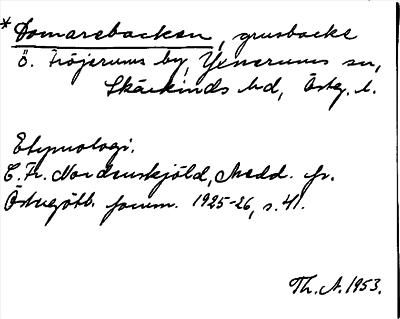 *Domarebacken, grusbacke
Ö. Fröjerums by, Yxnerums sn,
Skärkinds hd, Östg. l.
Etymologi.
C. Fr. Nordenskjöld, Medd. fr.
Östergötl. fornm. 1925-26, s. 41.
Th. A. 1953.